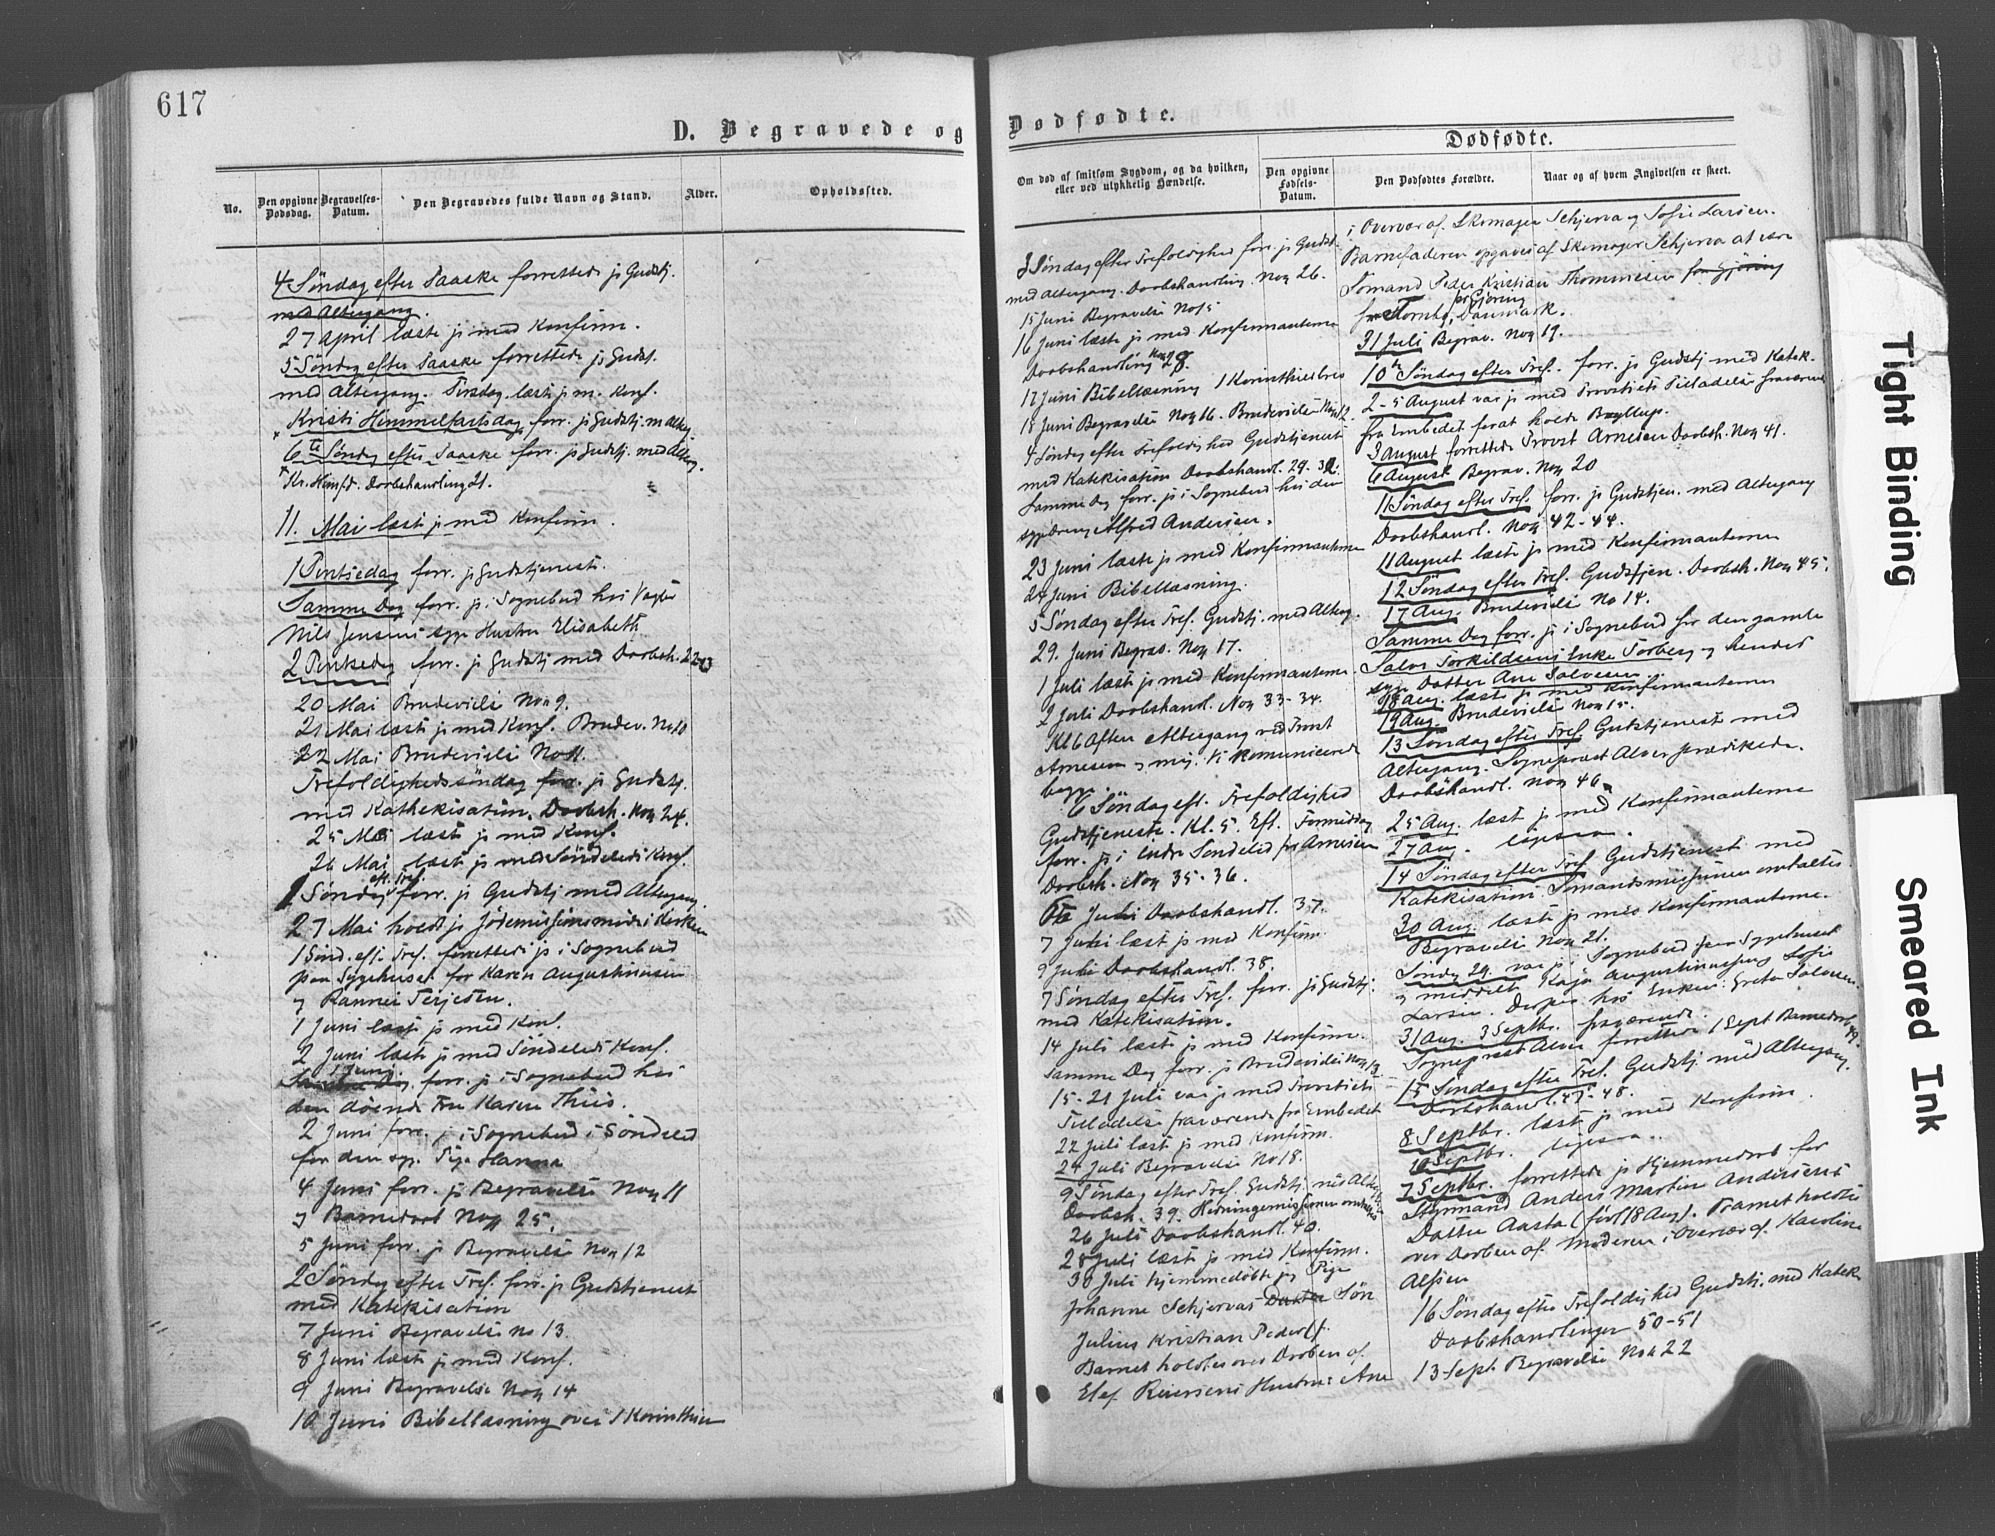 617
D. Begravede og
No.
Den opgivne Dødsdag.
Begravelses-Datum.
Den Begravedes fulde Navn og Stand.
Alder.
Opholdssted.
4 Søndag efter Paaske forrettede jeg Gudstj.
med Altergang.
27 April læste jeg med Konfirm.
5 Søndag efter Paaske forrettede jeg Gudst.
med Altergang. Tirsdag læst jeg m. Konf.
Kristi Himmelfartsdag forr. jeg Gudstj. m Alterg.
6te Søndag efter Paaske forr. jeg Gudstj. med Alterg.
Kr. Himf.d. Daabshandling 21.
11. Mai læst jeg med Konfirm.
1 Pintsedag forr. jeg Gudstjeneste.
Samme Dag forr. jeg i Sognebud hos
Nils Jensens syge Hustru Elisabeth
2 Pintsedag forr. jeg Gudstj med Daabsh. 22-23
20 Mai Brudevielse No 9.
21 Mai læst jeg med Konf. Brudev. No 10
22 Mai Brudevielse No 11.
Trefoldighedssöndag forr. jeg Gudstj.
med Kathekisation. Daabsh. No 24.
25 Mai læst jeg med Konf.
26 Mai læst jeg med Söndeleds Konf.
1 Søndag eft. Tref. forr. jeg Gudstj med Altergang.
27 Mai holdt jeg Jødemissionsmøde i Kirken
1 Sønd. eft. Tref. forrettede jeg i Sognebud
paa Sygehuset for Karen Augustinusen
og Rannei Terjesen.
1 Juni læst jeg med Konf.
2 Juni læst jeg med Söndeleds Konf.
1 Juni forr. jeg i Sognebud hos
den døende Fru Karen Thiis.
2 Juni forr. jeg i Sognebud i Söndeled
for den syge Pige Hanna
4 Juni forr. jeg Begravelse No 11
og Barnedaab No 25.
5 Juni forr. jeg Begravelse No 12
2 Søndag efter Tref. forr. jeg Gudstjeneste
med Katekisation
7 Juni Begravelse No 13.
8 Juni læst jeg med Konf.
9 Juni Begravelse No 14
10 Juni Bibellæsning over 1 Korinthier
Dødfødte.
Om død af smitsom Sygdom, og da hvilken, eller ved ulykkelig Hændelse.
Dødfødte.
Den opgivne Fødsels-Datum.
Den Dødfødtes Forældre.
Naar og af hvem Angivelsen er skeet.
3 Søndag efter Trefoldighed forr. jeg Gudst.
med Altergang. Daabshandling. No 26.
15 Juni Begravelse No 15
16 Juni læste jeg med Konfirmanterne
Daabshandling No 28.
17 Juni Bibellæsning 1 Korinthierbrev
18 Juni Begravelse No 16. Brudevielse No 12.
4 Søndag efter Trefoldighed Gudstjeneste
med Katekisation Daabshandl. 29-32.
Samme Dag forr. jeg i Sognebud hos den
syge Dreng Alfred Andersen.
23 Juni læste jeg med Konfirmanterne
24 Juni Bibellæsning.
5 Søndag efter Tref. Gudstj. med Alterg.
29. Juni Begrav. No 17.
1 Juli læst jeg med Konfirmanterne
2 Juli Daabshandl. No 33-34.
Kl 6 Aften Altergang ved Provst
Arnesen og mig. Vi kommunicerede
begge.
6 Søndag eft. Trefoldighed
Gudstjeneste. Kl. 5. Eft. Formiddag
forr. jeg i indre Søndeled for Arnesen
Daabsh. No 35-36.
6te Juli Daabshandl. 37.
7 Juli læst jeg med Konfirm.
9 Juli Daabshandl. 38.
7 Søndag efter Tref. forr. jeg Gudstj.
med Katekisation.
14 Juli læst jeg med Konfirm.
Samme Dag forr. jeg Brudevielse No 13
15-21 Juli var jeg med Provstiets
Tilladelse fraværende fra Embedet
22 Juli læst jeg med Konfirm.
24 Juli Begravelse No 18.
9 Søndag efter Tref. Gudstj. med Alterg.
Daabsh. 39. Hedningemissionen omtaltes
26 Juli Daabshandl. 40.
28 Juli læst jeg med Konfirm.
30 Juli hjemmedøbte jeg Pige
Johanne Schjervas Datter Søn
Julius Kristian Peder f.
Barnet holdtes over Daaben af
Elef Reiersens Hustru: Ane
i Overvær af Skomager Schjerva og Sofie Larsen.
Barnefaderen opgaves af Skomager Schjerva at være
Sømand Peder Kristian Thommesen for Gjöring
fra Tornby, pr Gjöring Danmark.
31 Juli Begrav. No 19.
10de Søndag efter Tref. forr. jeg Gudstj med Katek.
2-5 August var jeg med Provstiets Tilladelse fraværende
fra Embedet forat holde Bryllup.
3 August forrettede Provst Arnesen Daabsh. No 41.
6 August Begrav. No 20
11 Søndag efter Tref. forr. jg Gudstjen. med Altergang
Daabshandl. No 42-44.
11 August læst jeg med Konfirmanterne
12 Søndag efter Tref. Gudstjen. Daabsh. No 45.
17 Aug. Brudevielse No 14.
Samme Dag forr. jeg i Sognebud for den gamle
Salve Torkildsens Enke Torberg og hendes
syge Datter Ane Salvesen.
18 Aug. læst jg med Konfirmanterne
19 Aug. Brudevielse No 15.
13 Søndag efter Tref. Gudstjeneste med
Altergang. Sognepræst Alver prædikede.
Daabshandl. No 46
25 Aug. læst jeg med Konfirmanterne
27 Aug. ligesaa.
14 Søndag efter Tref Gudstjenest med
Katekisation Sømandsmissionen omtaltes
30 Aug. læst jeg med Konfirmanterne.
Begravelse No 21.
Søndag 29. var jeg i Sognebud paa Sygehuset
og meddelte Kaja Augustinusen og Sofie
Larsen. Derpaa hos Enken Greta Salvesen.
31 Aug. 3 Septbr. fraværende.
Sognepræst Alver forrettede 1 Sept Barnedaab 49.
15 Søndag efter Tref. Gudstj med Altergang.
Daabshandl. 47-48.
8 Septbr. læst jeg med Konfirm.
10 Septbr. ligesaa.
7 Septbr. forrettede jeg Hjemmedaab for
Styrmand Anders Martin Andersens
Datter Aasta (født 18 Aug). Barnet holdtes
over Daaben af Moderen i Overvær af Karoline
Alfsen
16 Søndag efter Trefoldighed Gudstj. med Katek.
Daabshandlinger 50-51
13 Sept. Begravelse No 22
Tight Binding
Smeared Ink